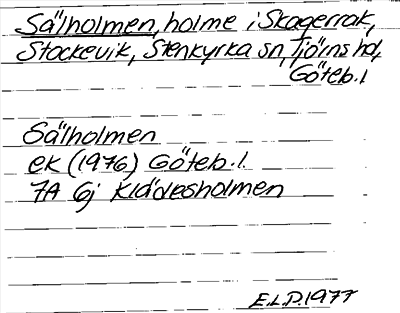 Sälholmen, holme i Skagerrak,
Stockevik, Stenkyrka sn, Tjörns hd,
Göteb. l
Sälholmen
ek (1976) Göteb. l.
7A 6j Klädesholmen
E.L.D. 1977